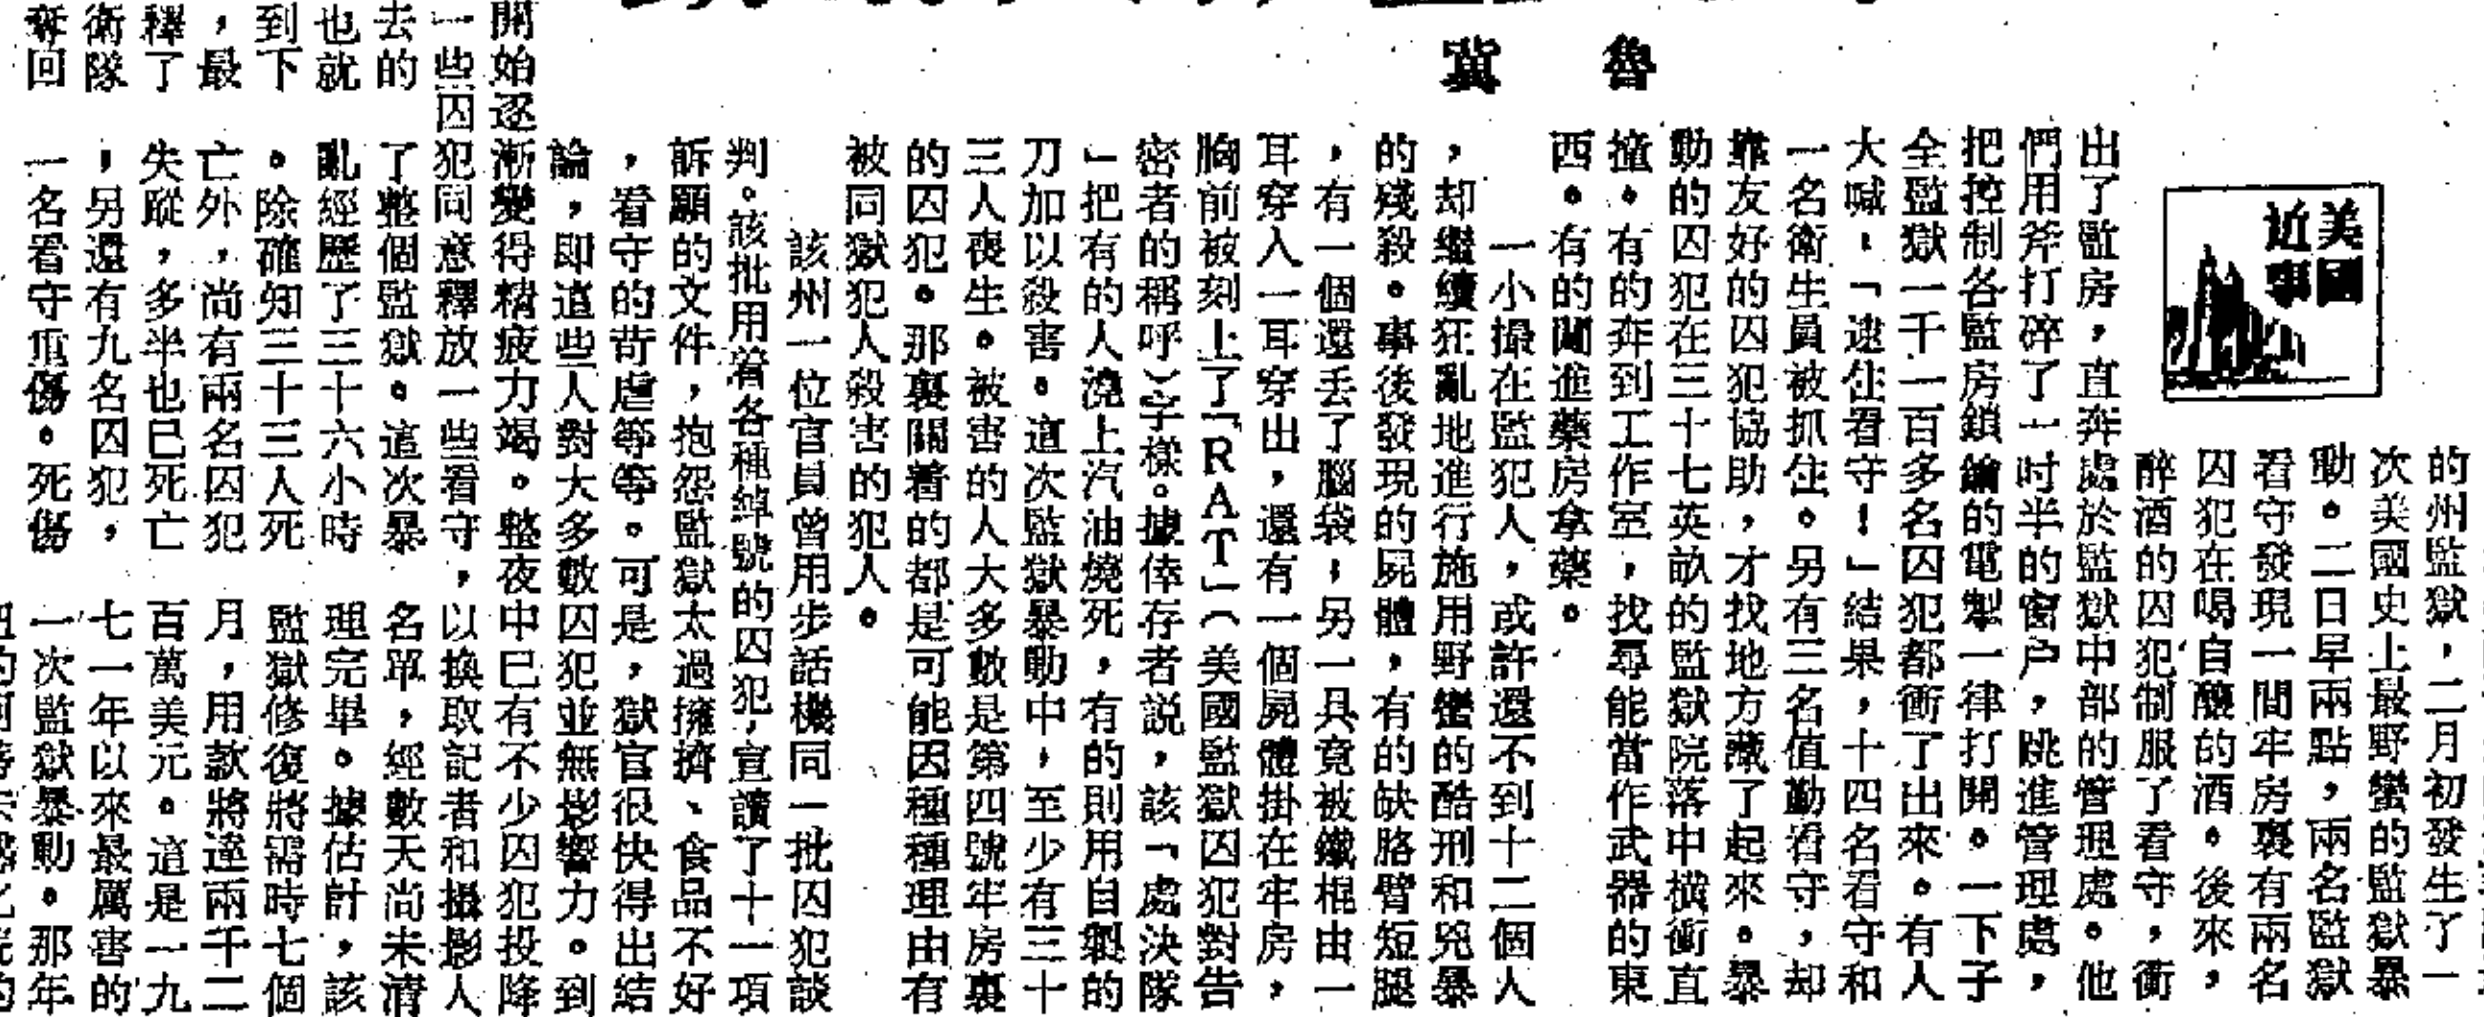 魯冀
美國
近事
的州監獄，二月初發生了一
次美國史上最野蠻的監獄暴
動。二日早兩點，兩名監獄
看守發現一間牢房裏有兩名
囚犯在喝自釀的酒。後來，
醉酒的囚犯制服了看守，衝
出了監房，直奔處於監獄中部的管理處。他
們用斧打碎了一吋半的窗户，跳進管理處，
把控制各監房鎖鑰的電掣一律打開。一下子
全監獄一千一百多名囚犯都衝了出來。有人
大喊：「逮住看守！」結果，十四名看守和
一名衛生員被抓住。另有三名值勤看守，却
靠友好的囚犯協助，才找地方藏了起來。暴
動的囚犯在三十七英畝的監獄院落中橫衝直
撞。有的奔到工作室，找尋能當作武器的東
西。有的闖進藥房拿藥。
一小撮在監犯人，或許還不到十二個人
，却繼續狂亂地進行施用野蠻的酷刑和兇暴
的殘殺。事後發現的屍體，有的缺胳臂短腿
，有一個還丢了腦袋；另一具竟被鐵棍由一
耳穿入一耳穿出，還有一個屍體掛在牢房，
胸前被刻上了「RAT」（美國監獄囚犯對告
密者的稱呼）字樣。據倖存者説，該「處決隊
」把有的人澆上汽油燒死，有的則用自製的
刀加以殺害。這次監獄暴動中，至少有三十
三人喪生。被害的人大多數是第四號牢房裏
的囚犯。那裏關着的都是可能因種種理由有
被同獄犯人殺害的犯人。
該州一位官員曾用步話機同一批囚犯談
判。該批用着各種綽號的囚犯，宣讀了十一項
訴願的文件，抱怨監獄太過擁擠、食品不好
，看守的苛虐等等。可是，獄官很快得出結
論，即這些人對大多數囚犯並無影響力。到
開始逐漸變得精疲力竭。整夜中已有不少囚犯投降
一些囚犯同意釋放一些看守，以換取記者和攝影人
去的
也就
到下
，最
釋了
衛隊
奪回
了整個監獄。這次暴
亂經歷了三十六小時
。除確知三十三人死
亡外，尚有兩名囚犯
失蹤，多半也已死亡
，另還有九名囚犯，
一名看守重傷。死傷
名單，經數天尚未清
理完畢。據估計，該
監獄修復將需時七個
月，用款將達兩千二
百萬美元。這是一九
七一年以來最厲害的
一次監獄暴動。那年